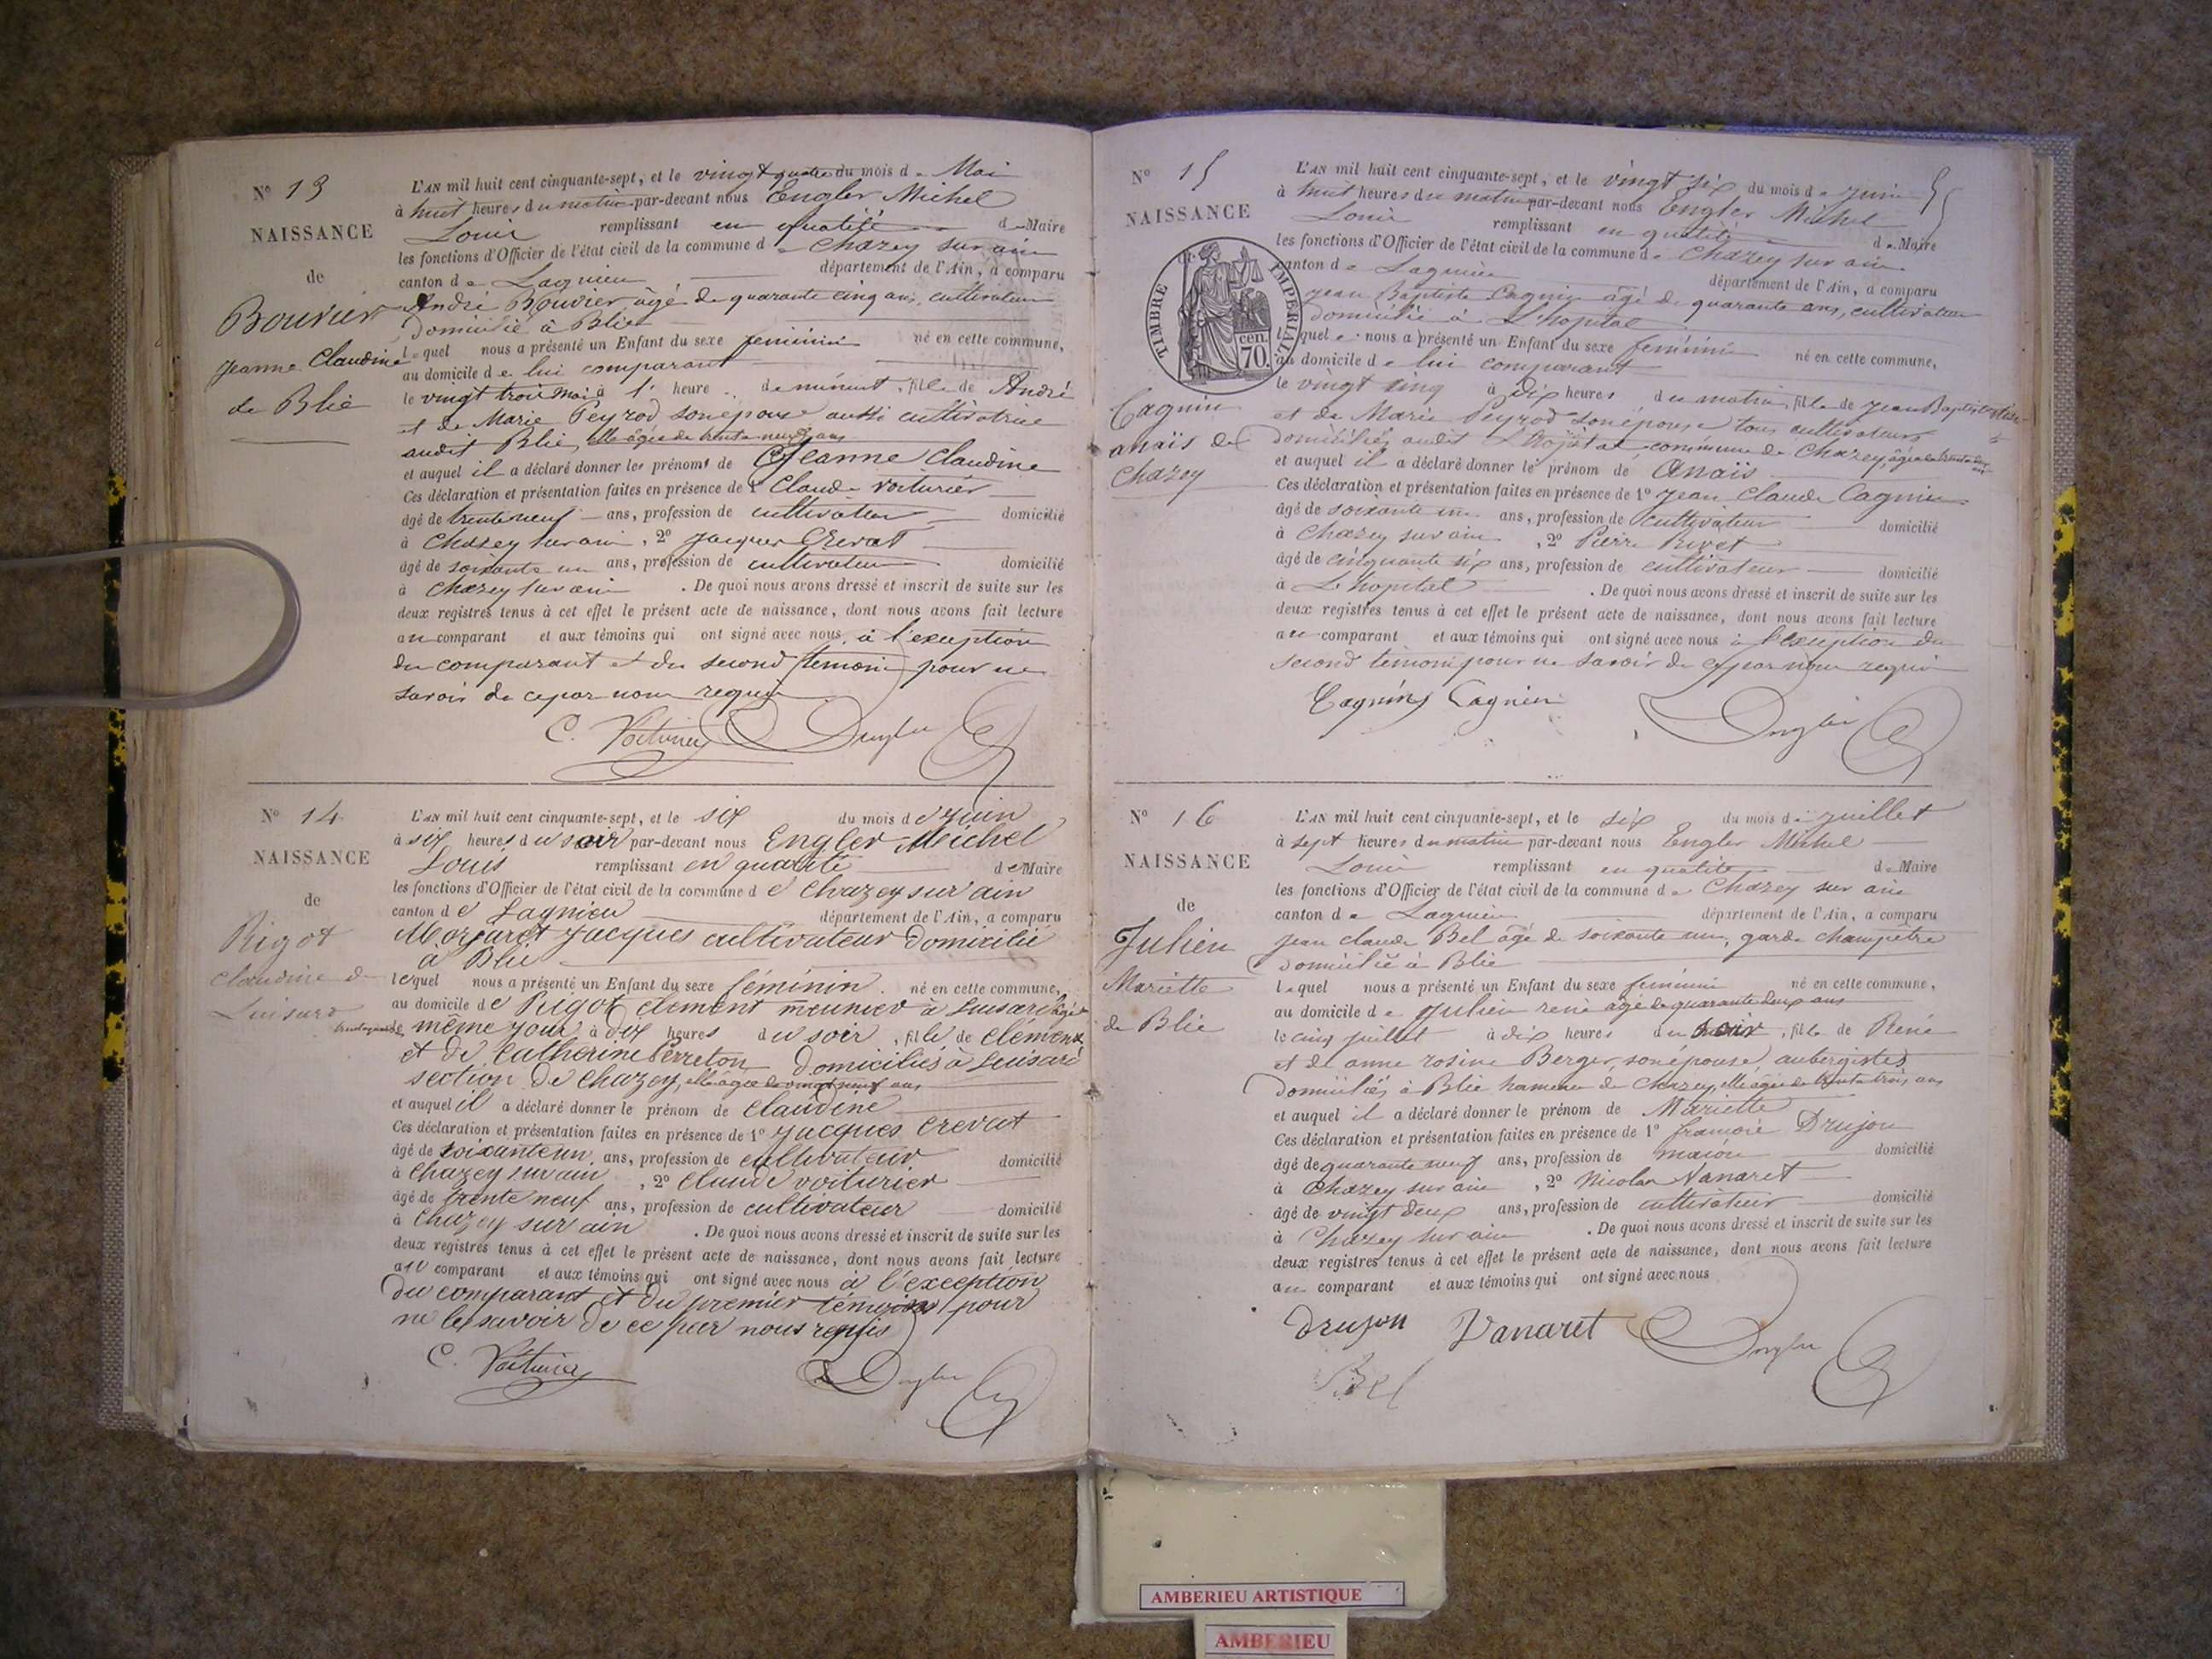 N° 13
NAISSANCE
de
Bouvier
Jeanne Claudine
de Blie
L'AN mil huit cent cinquante-sept, et le vingt quatre du mois de Mai
à huit heures du matin par-devant nous Engler Michel
Louis remplissant en qualité de Maire
les fonctions d'Officier de l'état civil de la commune de Chazey sur ain
canton de Lagnieu département de l'Ain, a comparu
André Bouvier âgé de quarante cinq ans, cultivateur
domicilié à Blie
lequel nous a présenté un Enfant du sexe feminin né en cette commune,
au domicile de lui comparant
le vingt trois Mai à 1 heure de minuit, fille de André
et de Marie Peyrod son épouse aussi cultivatrice
audit Blie, elle âgée de trente neuf ans
et auquel il a déclaré donner les prénoms de Jeanne Claudine
Ces déclaration et présentation faites en présence de 1° Claude Voiturier
âgé de trente neuf ans, profession de cultivateur domicilié
à Chazey sur ain, 2° Jacques Crevat
âgé de soixante un ans, profession de cultivateur domicilié
à Chazey sur ain. De quoi nous avons dressé et inscrit de suite sur les
deux registres tenus à cet effet le présent acte de naissance, dont nous avons fait lecture
au comparant et aux témoins qui ont signé avec nous, à l'exception
du comparant et du second témoin pour ne
savoir de ce par nous requis
C. Voiturier Engler
N° 14
NAISSANCE
de
Rigot
Claudine de
Luisard
L'AN mil huit cent cinquante-sept, et le six du mois de Juin
à six heures du soir par-devant nous Engler Michel
Louis remplissant en qualité de Maire
les fonctions d'Officier de l'état civil de la commune de Chazey sur ain
canton de Lagnieu département de l'Ain, a comparu
Morgaret Jacques cultivateur domicilié
à Blie
lequel nous a présenté un Enfant du sexe féminin né en cette commune,
au domicile de Rigot clement meunier à Luisard âgé de
le même jour à dix heures du soir, fille de clément
et de Catherine Perreton domiciliés à Luisard
section de Chazey, elle âgée de vingt neuf ans
et auquel il a déclaré donner le prénom de Claudine
Ces déclaration et présentation faites en présence de 1° Jacques Crevat
âgé de soixante un ans, profession de cultivateur domicilié
à Chazey sur ain, 2° Claude voiturier
âgé de trente neuf ans, profession de cultivateur domicilié
à Chazey sur ain. De quoi nous avons dressé et inscrit de suite sur les
deux registres tenus à cet effet le présent acte de naissance, dont nous avons fait lecture
au comparant et aux témoins qui ont signé avec nous à l'exception
du comparant et du premier témoin pour
ne le savoir de ce par nous requis
C. Voiturier Engler
N° 15
NAISSANCE
TIMBRE IMPERIAL
70 cen.
Cagnin
anaïs de
Chazey
L'AN mil huit cent cinquante-sept, et le vingt six du mois de juin
à huit heures du matin par-devant nous Engler Michel
Louis remplissant en qualité de Maire
les fonctions d'Officier de l'état civil de la commune de Chazey sur ain
canton de Lagnieu département de l'Ain, a comparu
jean Baptiste Cagnin âgé de quarante ans, cultivateur
domicilié à L'hopital
lequel nous a présenté un Enfant du sexe feminin né en cette commune,
au domicile de lui comparant
le vingt cinq à dix heures du matin, fille de Jean Baptiste
et de Marie Peyrod son épouse tous cultivateurs
domiciliés audit L'hopital commune de Chazey, âgée de
et auquel il a déclaré donner le prénom de Anaïs
Ces déclaration et présentation faites en présence de 1° Jean Claude Cagnin
âgé de soixante un ans, profession de cultivateur domicilié
à Chazey sur ain, 2° Pierre Rivet
âgé de cinquante six ans, profession de cultivateur domicilié
à L'hopital. De quoi nous avons dressé et inscrit de suite sur les
deux registres tenus à cet effet le présent acte de naissance, dont nous avons fait lecture
au comparant et aux témoins qui ont signé avec nous à l'exception du
second témoin pour ne savoir de ce par nous requis
Cagnin Cagnin Engler
N° 16
NAISSANCE
de
Julien
Mariette
de Blie
L'AN mil huit cent cinquante-sept, et le six du mois de juillet
à sept heures du matin par-devant nous Engler Michel
Louis remplissant en qualité de Maire
les fonctions d'Officier de l'état civil de la commune de Chazey sur ain
canton de Lagnieu département de l'Ain, a comparu
jean claude Bel âgé de soixante un, garde champêtre
domicilié à Blie
lequel nous a présenté un Enfant du sexe feminin né en cette commune,
au domicile de Julien rené âgé de quarante deux ans
le cinq juillet à dix heures du soir, fille de René
et de anne rosine Berger, son épouse, aubergistes
domiciliés à Blie hameau de Chazey, elle âgée de trente trois ans
et auquel il a déclaré donner le prénom de Mariette
Ces déclaration et présentation faites en présence de 1° françois Drujon
âgé de quarante neuf ans, profession de maçon domicilié
à Chazey sur ain, 2° Nicolas Vanaret
âgé de vingt deux ans, profession de cultivateur domicilié
à Chazey sur ain. De quoi nous avons dressé et inscrit de suite sur les
deux registres tenus à cet effet le présent acte de naissance, dont nous avons fait lecture
au comparant et aux témoins qui ont signé avec nous
Drujon Vanaret Engler
Bel
AMBERIEU ARTISTIQUE
AMBERIEU